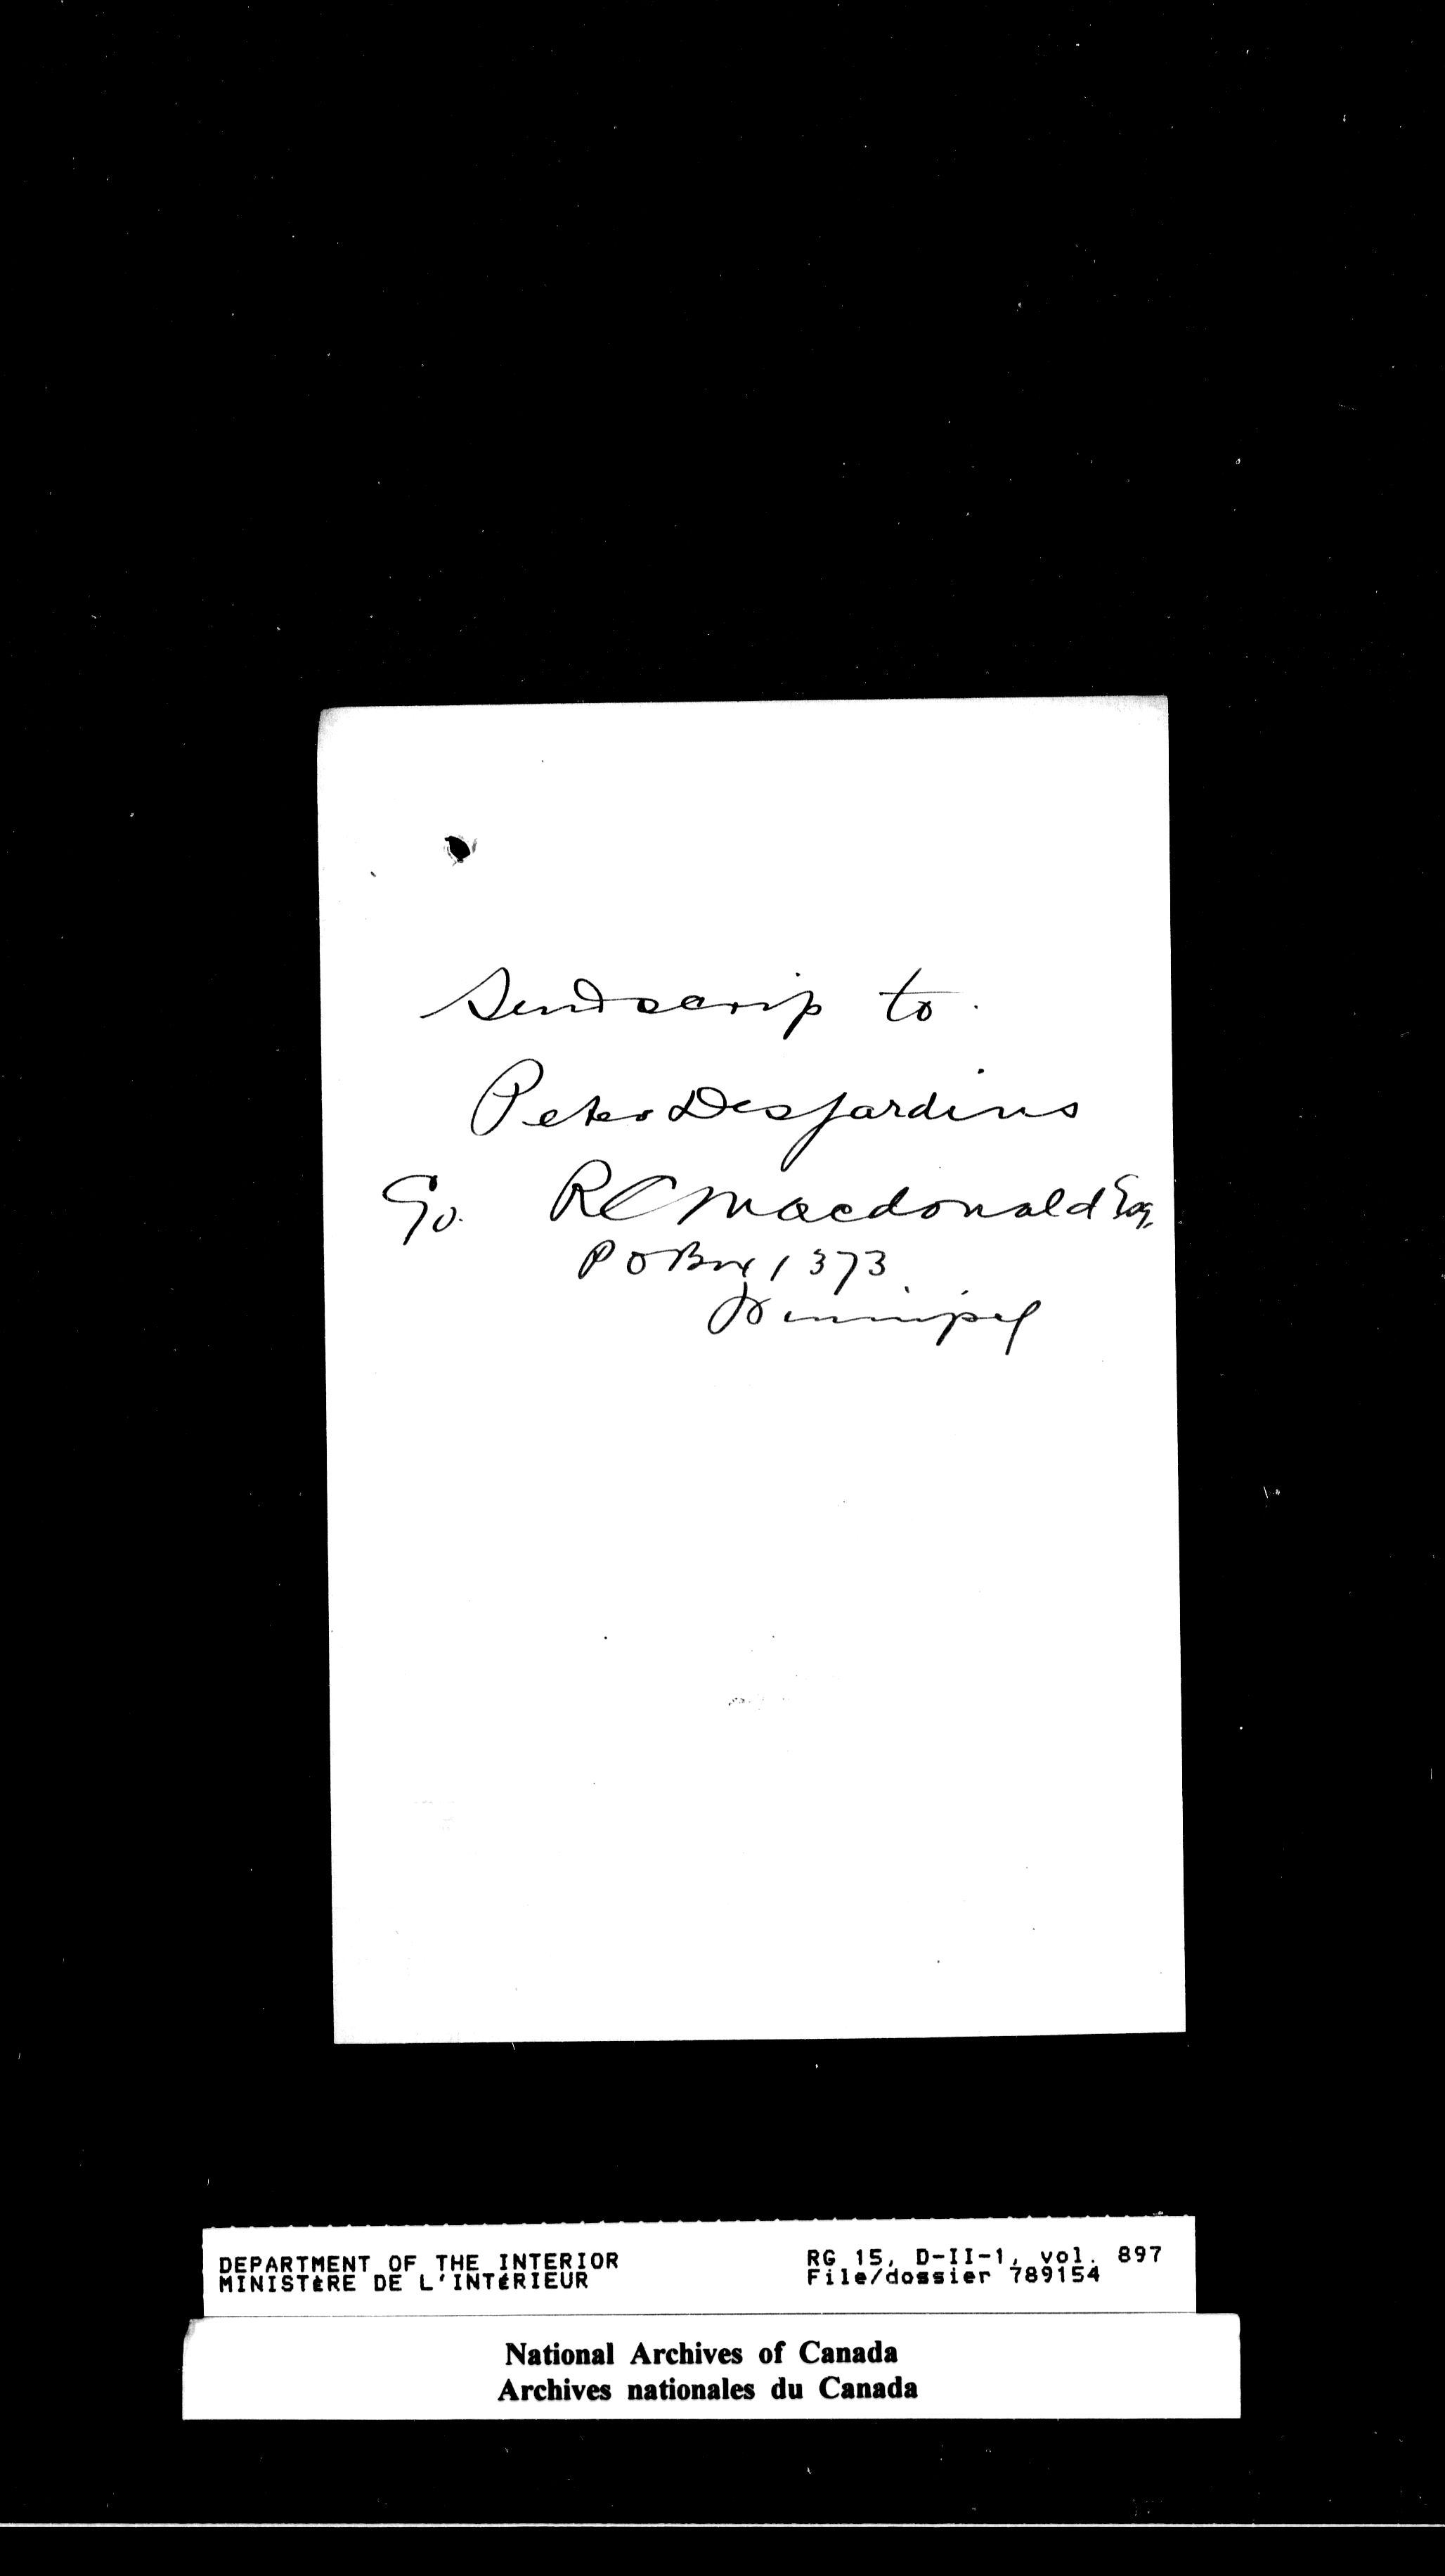 Send scrip to
Peter Desjardins
C/o. R C Macdonald Esq.
P O Box 1373.
Winnipeg
DEPARTMENT OF THE INTERIOR
MINISTÈRE DE L'INTÉRIEUR
RG 15, D-II-1, vol. 897
File/dossier 789154
National Archives of Canada
Archives nationales du Canada